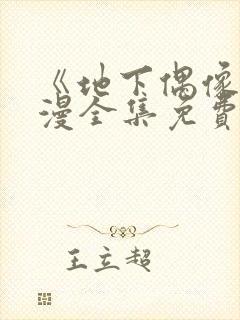 《地下偶像
漫全集免費
王立超